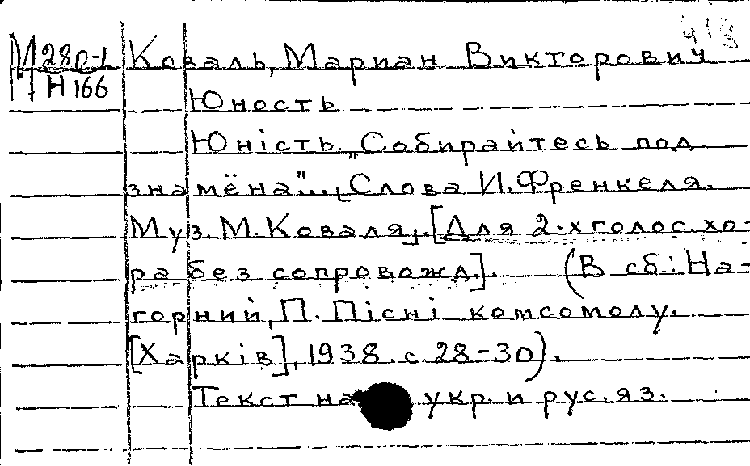 418
М 280-1 Коваль, Мариан Викторович
Н 166
Юность
Юність. „Собирайтесь под
знамёна"... Слова И. Френкеля.
Муз. М. Коваля. [Для 2-х голос. хо-
ра без сопровожд.]. (В сб.: На-
горний, П. Пісні комсомолу.
[Харків], 1938. с 28-30).
Текст на укр. и рус. яз.